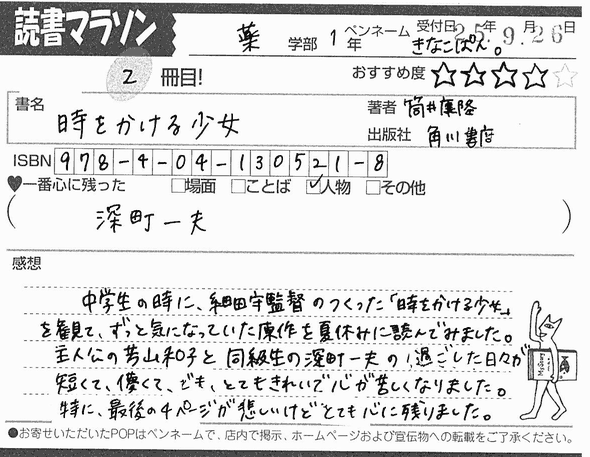 読書マラソン
薬 学部 1年 ペンネーム きなこぱん。 受付日 25年9月26日
2 冊目!
おすすめ度 ★★★★☆
書名 時をかける少女
著者 筒井康隆
出版社 角川書店
ISBN 978-4-04-130521-8
♥一番心に残った □場面 □ことば ☑人物 □その他
( 深町一夫 )
感想
中学生の時に、細田守監督のつくった「時をかける少女」
を観て、ずっと気になっていた原作を夏休みに読んでみました。
主人公の芳山和子と同級生の深町一夫の過ごした日々が
短くて、儚くて、でも、とてもきれいで心が苦しくなりました。
特に、最後の4ページが悲しいけどとても心に残りました。
●お寄せいただいたPOPはペンネームで、店内で掲示、ホームページおよび宣伝物への転載をご了承ください。